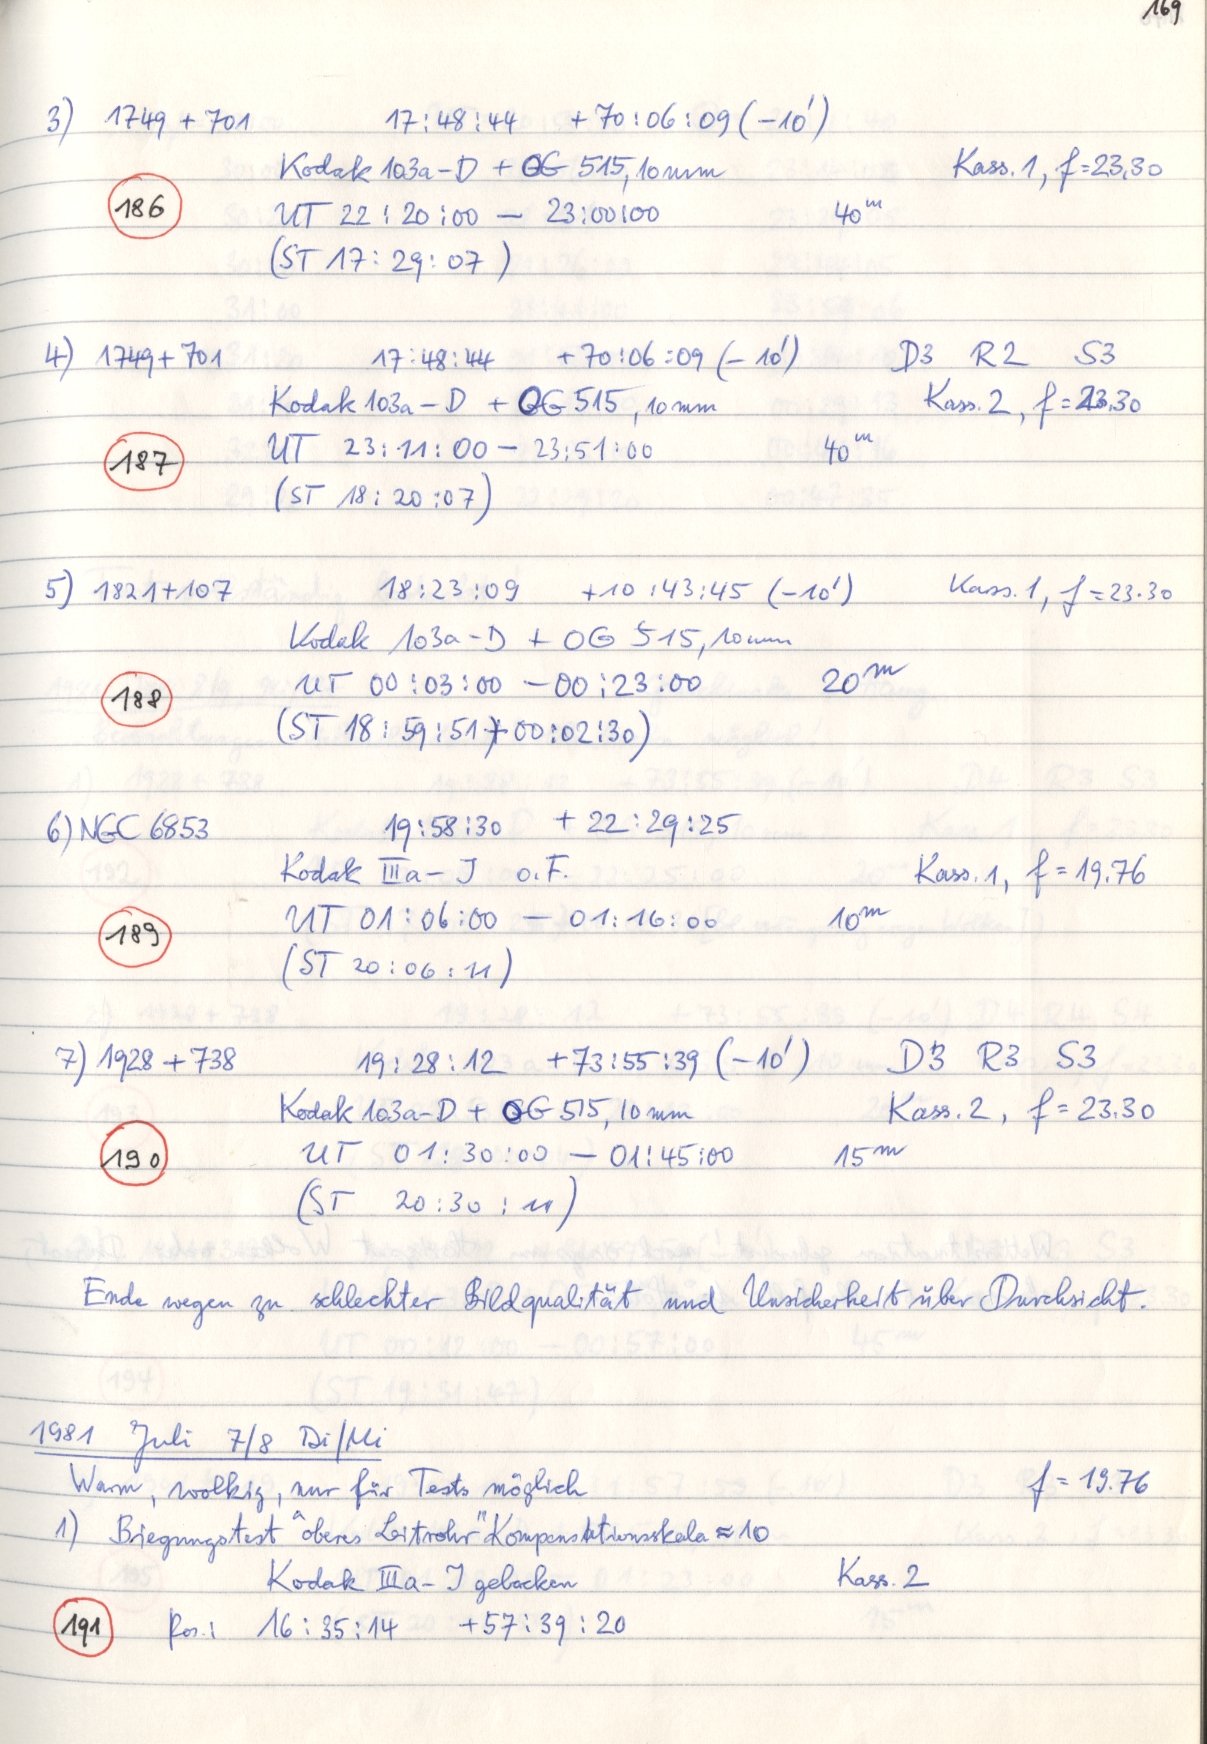 169
3) 1749 + 701 17:48:44 +70:06:09 (-10')
Kodak 103a-D + OG 515, 10mm Kass. 1, f=23.30
186 UT 22:20:00 - 23:00:00 40m
(ST 17:29:07)
4) 1749 + 701 17:48:44 +70:06:09 (-10') D3 R2 S3
Kodak 103a-D + OG 515, 10mm Kass. 2, f=23.30
187 UT 23:11:00 - 23:51:00 40m
(ST 18:20:07)
5) 1821+107 18:23:09 +10:43:45 (-10') Kass. 1, f=23.30
Kodak 103a-D + OG 515, 10mm
188 UT 00:03:00 - 00:23:00 20m
(ST 18:59:51 + 00:02:30)
6) NGC 6853 19:58:30 + 22:29:25
Kodak IIIa-J o.F. Kass. 1, f=19.76
189 UT 01:06:00 - 01:16:00 10m
(ST 20:06:11)
7) 1928 + 738 19:28:12 +73:55:39 (-10') D3 R3 S3
Kodak 103a-D + OG 515, 10mm Kass. 2, f=23.30
190 UT 01:30:00 - 01:45:00 15m
(ST 20:30:11)
Ende wegen zu schlechter Bildqualität und Unsicherheit über Durchsicht.
1981 Juli 7/8 Di/Mi
Warm, wolkig, nur für Tests möglich f=19.76
1) Biegungstest "oberes Leitrohr" Kompensationsskala ≈ 10
Kodak IIIa-J gebacken Kass. 2
191 Pos.: 16:35:14 +57:39:20